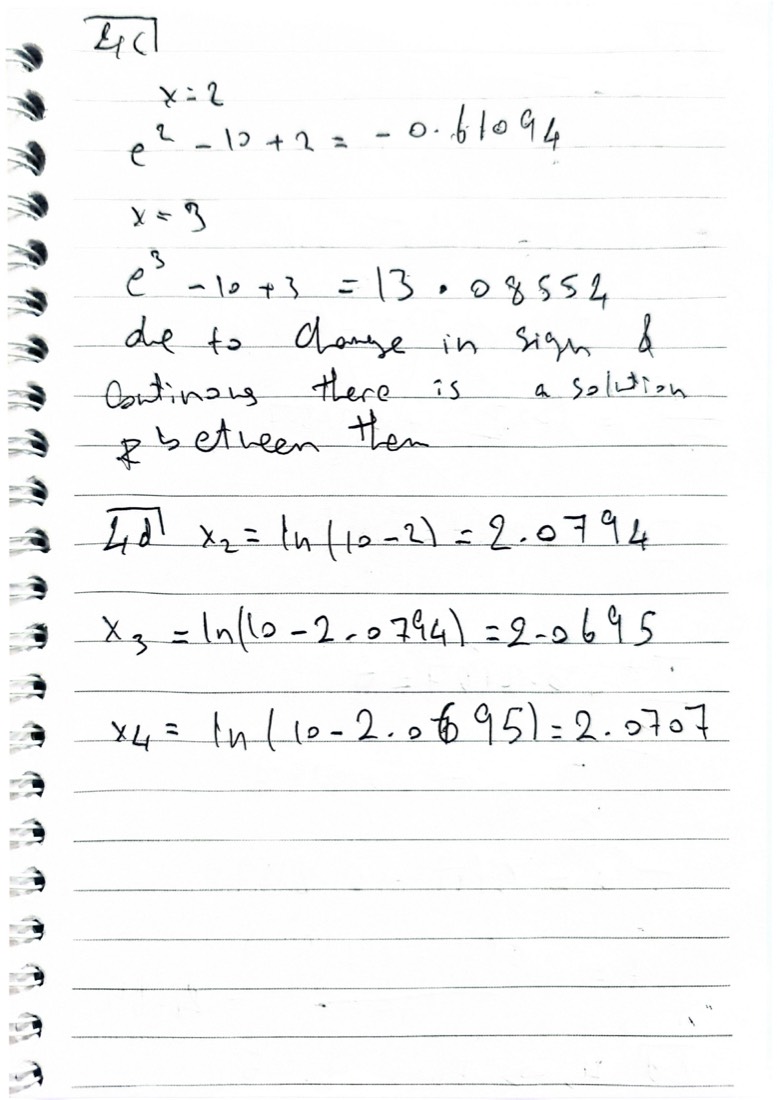 4c
x=2
e² - 10 + 2 = - 0.61094
x = 3
e³ - 10 + 3 = 13.08554
due to change in sign &
Continous there is a solution
between them
4d x₂ = ln(10-2) = 2.0794
x₃ = ln(10 - 2.0794) = 2.0695
x₄ = ln(10 - 2.0695) = 2.0707